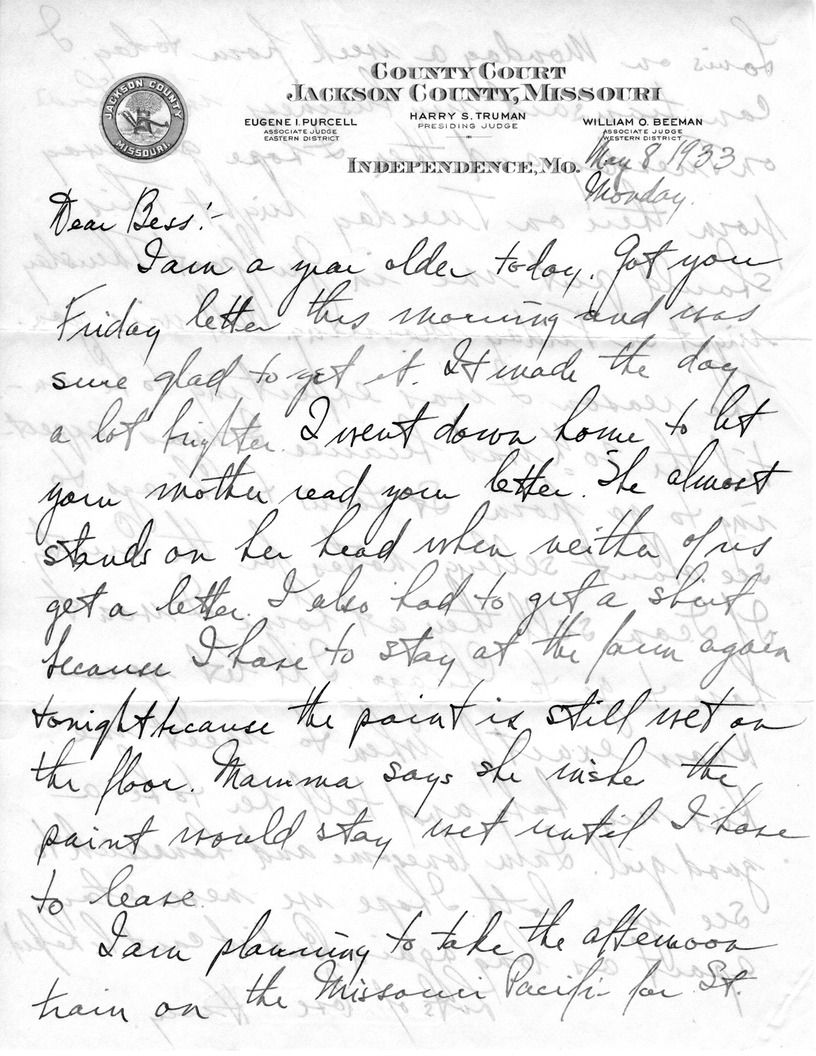 COUNTY COURT
JACKSON COUNTY, MISSOURI
JACKSON COUNTY
MISSOURI
EUGENE I. PURCELL
ASSOCIATE JUDGE
EASTERN DISTRICT
HARRY S. TRUMAN
PRESIDING JUDGE
WILLIAM O. BEEMAN
ASSOCIATE JUDGE
WESTERN DISTRICT
INDEPENDENCE, MO. May 8, 1933
Monday.
Dear Bess:-
I am a year older today. Got your
Friday letter this morning and was
sure glad to get it. It made the day
a lot brighter. I went down home to let
your mother read your letter. She almost
stands on her head when neither of us
get a letter. I also had to get a shirt
because I have to stay at the farm again
tonight because the paint is still wet on
the floor. Mamma says she wishes the
paint would stay wet until I have
to leave.
I am planning to take the afternoon
train on the Missouri Pacific for St.